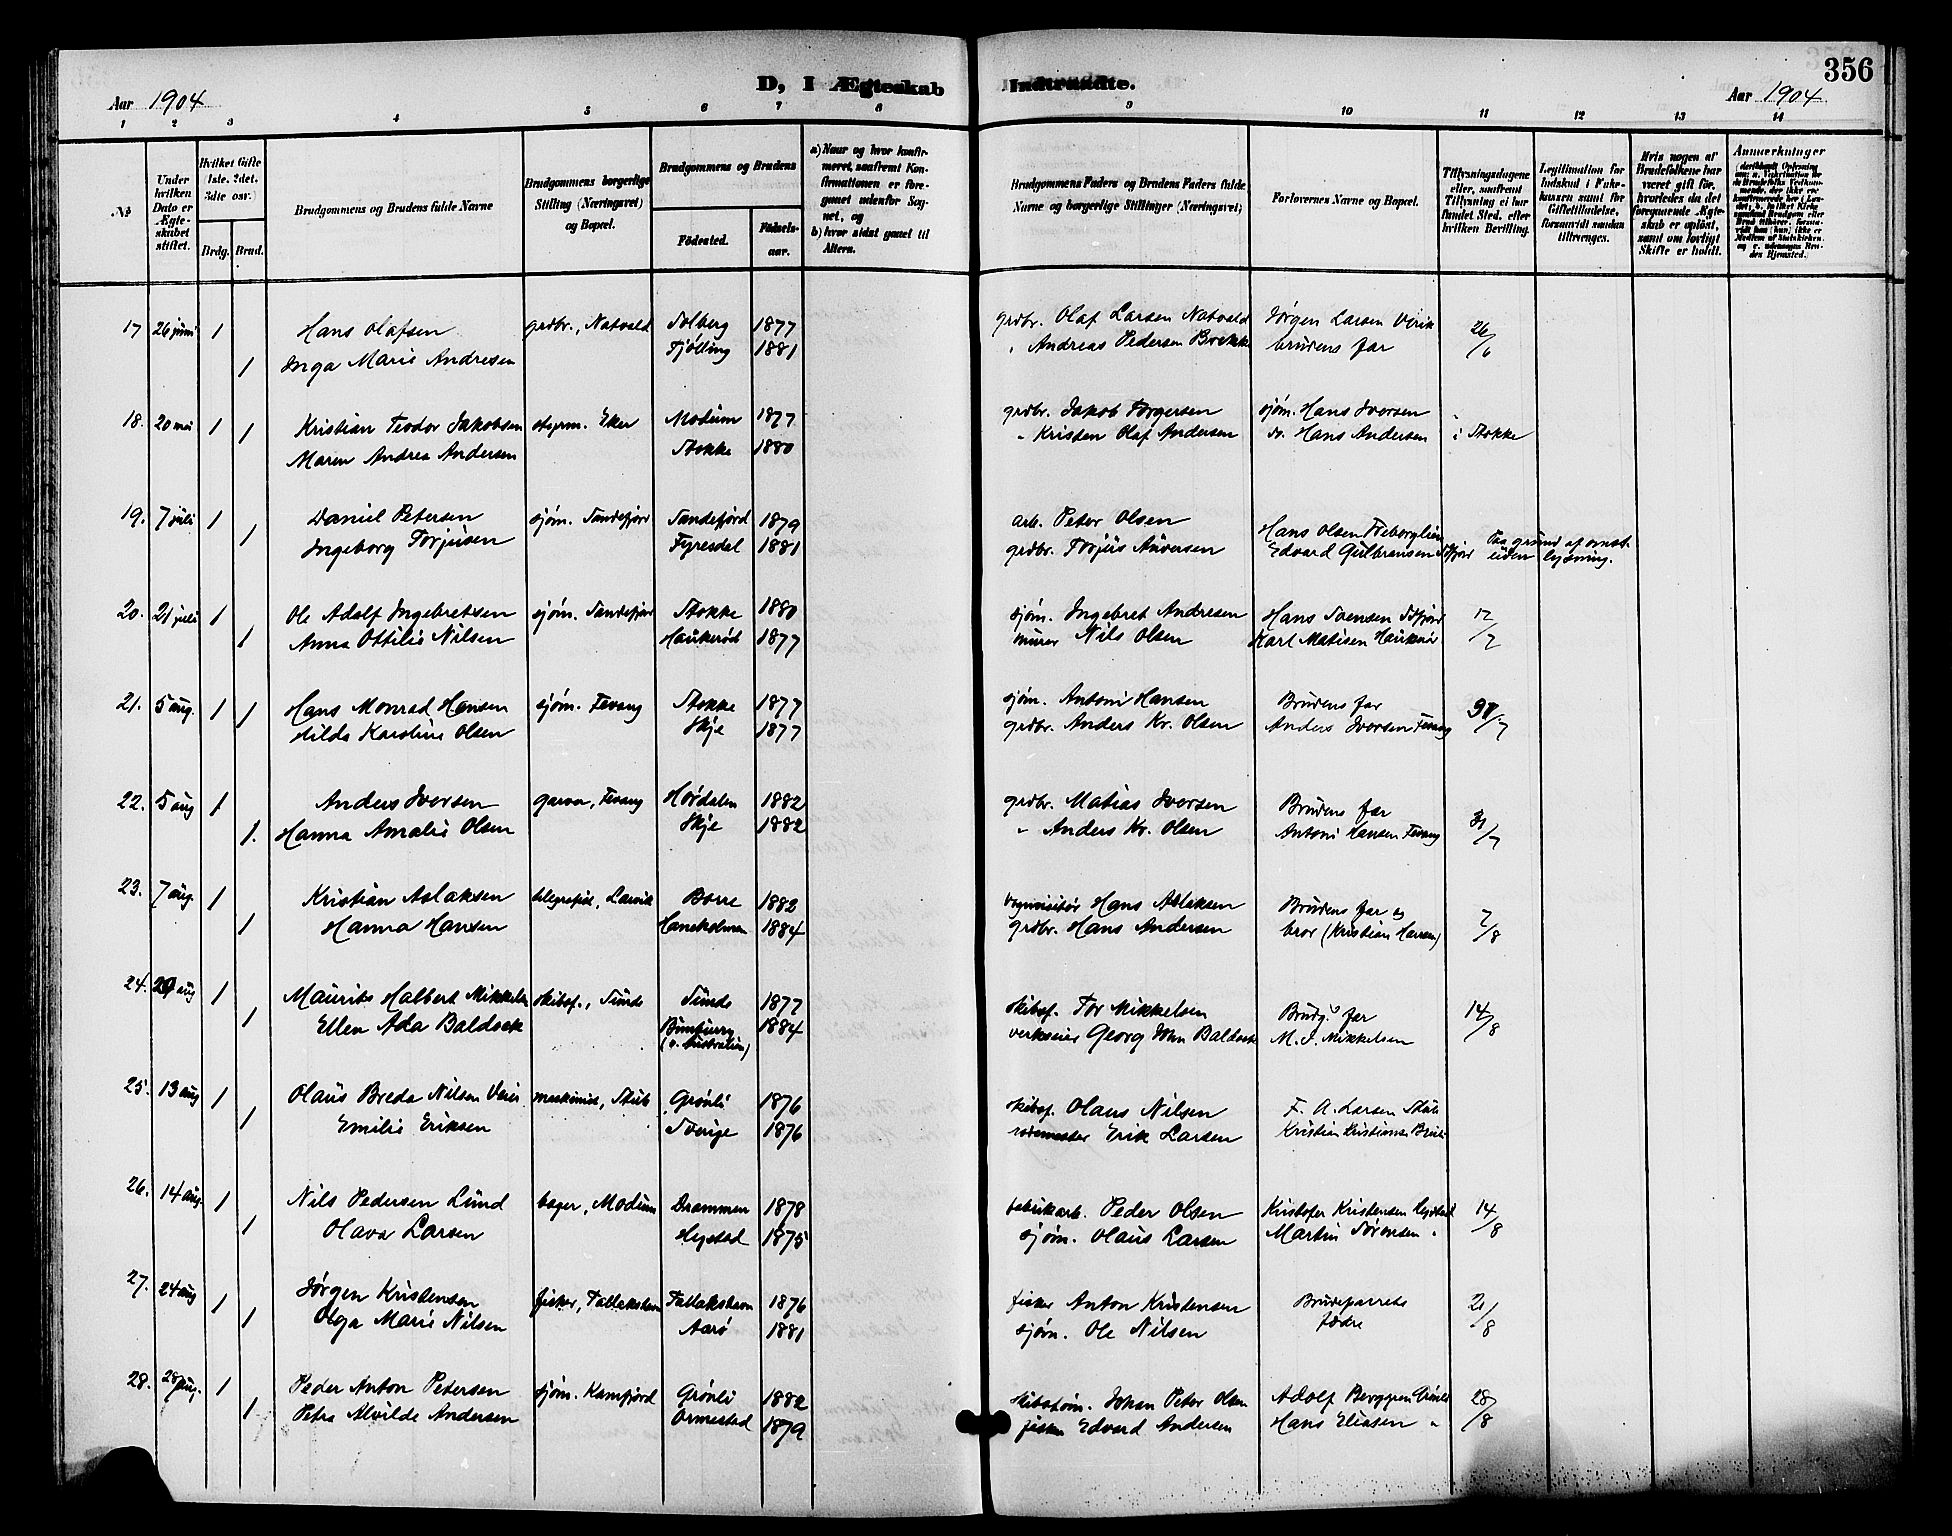 356
D, I Ægteskab Indtraadte.
Aar 1904
Aar 1904
1 2 3 4 5 6 7 8 9 10 11 12 13 14
No
Under hvilken Dato er Ægteskabet stiftet.
Hvilket Gifte 1ste, 2det, 3die osv.
Brdg. Brud.
Brudgommens og Brudens fulde Navne
Brudgommens borgerlige Stilling (Næringsvei) og Bopæl.
Brudgommens og Brudens
Fødested.
Fødselsaar.
a) Naar og hvor konfirmeret, saafremt Konfirmationen er foregaaet udenfor Sognet, og
b) hvor sidst gaaet til Alters.
Brudgommens Faders og Brudens Faders fulde Navne og borgerlige Stillinger (Næringsvei)
Forlovernes Navne og Bopæl.
Tillysningsdagene eller, saafremt Tillysning ei har fundet Sted, efter hvilken Bevilling.
Legitimation for Indskud i Enkekassen samt for Giftetilladelse, forsaavidt saadan tiltrænges.
Hvis nogen af Brudefolkene har været gift før, hvorledes da det foregaaende Ægteskab er opløst, samt om lovligt Skifte er holdt.
Anmærkninger
17 26 juni 1 Hans Olafsen grdbr., Natvald Solberg 1877 grdbr. Olaf Larsen Natvald Jørgen Larsen Virik 26/6
1 Inga Marie Andresen Tjølling 1881 " Andreas Pedersen Brekke brudens far
18. 20 mai 1 Kristian Teodor Jakobsen styrm. Eken Modum 1877 grdbr. Jakob Torgersen sjøm. Hans Iversen
1 Maren Andrea Andersen Stokke 1880 " Kristen Olaf Andersen do. Hans Andersen i Stokke
19. 7 juli 1 Daniel Petersen sjøm. Sandefjord Sandefjord 1879 arb. Peter Olsen Hans Olsen
1 Ingeborg Torjusen Fyresdal 1881 grdbr. Torjus Aanersen Edvard Gulbransen S.fjord Paa grund af omst. uden lysning.
20. 21 juli 1 Ole Adolf Ingebretsen sjøm. Sandefjord Stokke 1880 sjøm. Ingebret Andresen Hans Svensen S.fjord 17/7
1 Anna Ottilie Nilsen Haukerød 1877 murer Nils Olsen Karl Matisen Haukerød
21. 5 aug. 1 Hans Monrad Hansen sjøm. Fevang Stokke 1877 sjøm. Antoni Hansen Brudens far 31/7
1 Hilda Karoline Olsen Skje 1877 grdbr. Anders Kr. Olsen Anders Iversen Fevang
22. 5 aug 1 Anders Iversen garver, Fevang Hørdalen 1882 grdbr. Matias Iversen Brudens far 31/7
1. Hanna Amalie Olsen Skje 1882 " Anders Kr. Olsen Antoni Hansen Fevang
23. 7 aug. 1 Kristian Aslaksen telegrafist, Larvik Borre 1882 vognvisitør Hans Aslaksen Brudens far og 7/8
1 Hanna Hansen Haneholmen 1884 grdbr. Hans Andersen bror (Kristian Hansen)
24. 20 aug 1 Maurits Halbert Mikkelsen skibsf., Sunde Sunde 1877 skibsf. Tor Mikkelsen Brudg.s far 14/8
1 Ellen Ada Baldock (v. Australien) 1884 verkseier Georg Wm Baldock M. J. Mikkelsen
25. 13 aug 1 Olaus Breda Nilsen Veier maskinist, Stub Grønli 1876 skibsf. Olaus Nilsen F. A. Larsen Stub
1 Emilie Eriksen Sverige 1876 Erik Larsen Kristian Kristiansen
26. 14 aug. 1 Nils Pedersen Lund bager, Modum Drammen 1878 fabrikarb. Peder Olsen Kristofer Kristensen Hystad 14/8
1 Olava Larsen Hystad 1875 sjøm. Olaus Larsen Martin Sørensen "
27. 24 aug 1 Jørgen Kristensen fisker, Tallakshavn Tallakshavn 1876 fisker Anton Kristensen Brudeparrets 21/8
1 Olga Marie Nilsen Aarø 1881 sjøm. Ole Nilsen fædre
28. 28 aug. 1 Peder Anton Petersen sjøm. Kamfjord Grønli 1882 skibstøm. Johan Peter Olsen Adolf Berggren Grønli 28/8
1 Petra Alvilde Andersen Ormestad 1879 fisker Edvard Andersen Hans Eliasen "